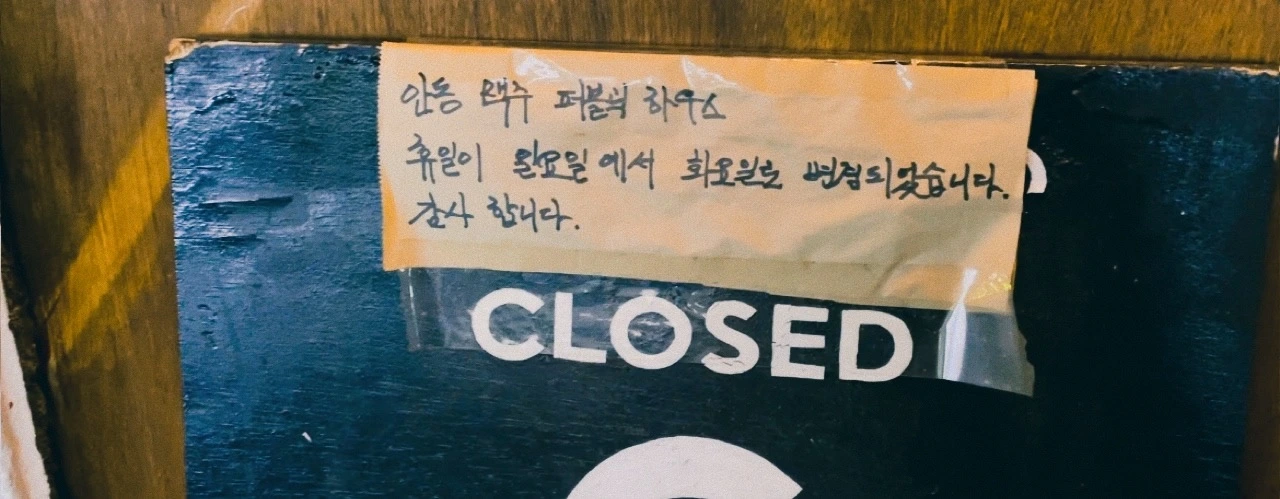 안동 맥주 퍼블릭 하우스
휴일이 월요일에서 화요일로 변경되었습니다.
감사 합니다.
CLOSED